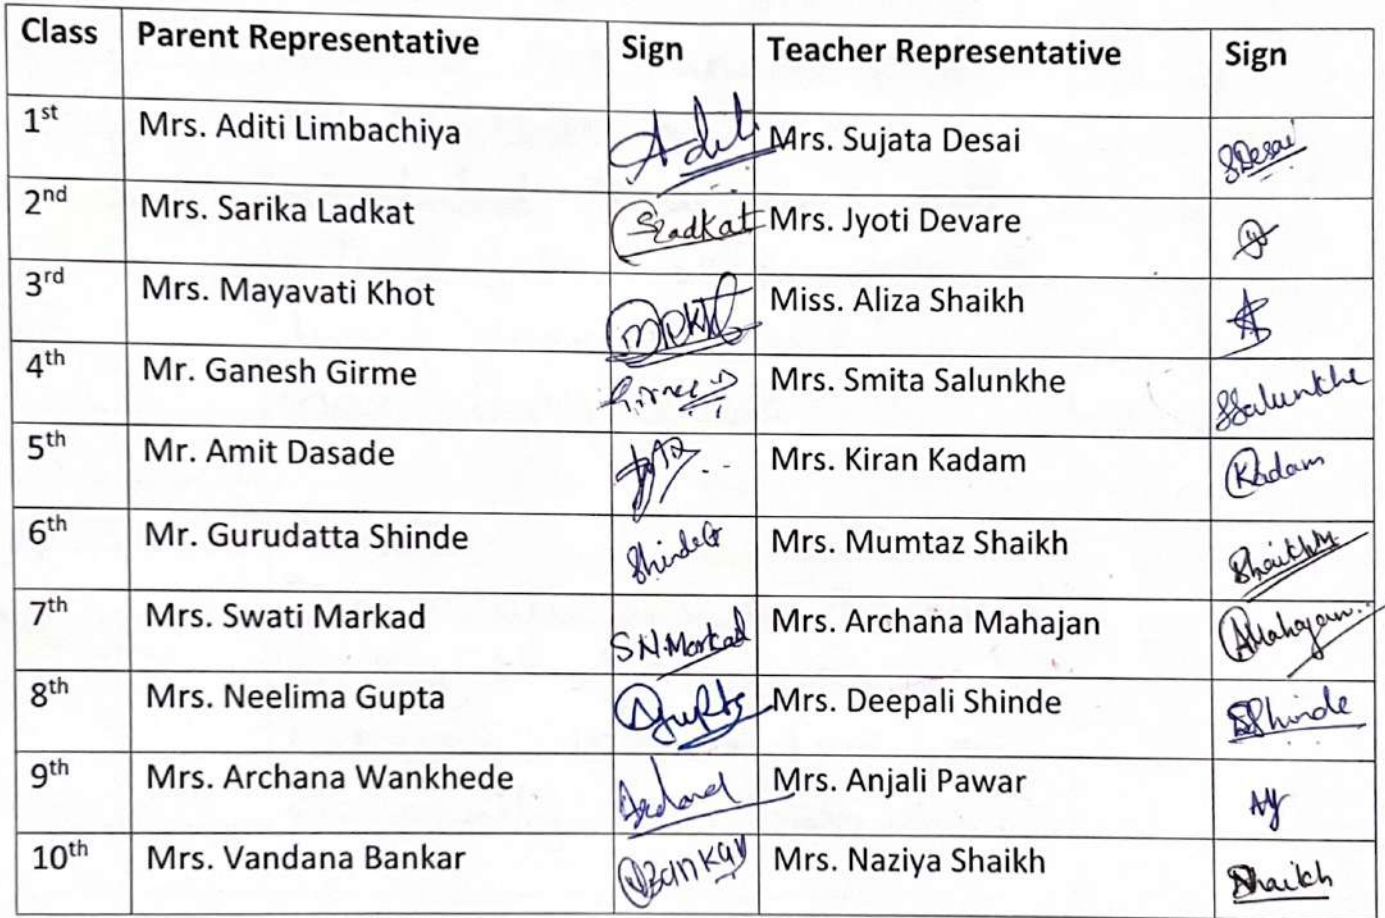 Class Parent Representative Sign Teacher Representative Sign
1st Mrs. Aditi Limbachiya Aditi Mrs. Sujata Desai SDesai
2nd Mrs. Sarika Ladkat SLadkat Mrs. Jyoti Devare
3rd Mrs. Mayavati Khot Miss. Aliza Shaikh
4th Mr. Ganesh Girme Mrs. Smita Salunkhe SSalunkhe
5th Mr. Amit Dasade Mrs. Kiran Kadam Kadam
6th Mr. Gurudatta Shinde ShindeG Mrs. Mumtaz Shaikh ShaikhM
7th Mrs. Swati Markad S.N.Markad Mrs. Archana Mahajan AMahajan
8th Mrs. Neelima Gupta NGupta Mrs. Deepali Shinde DShinde
9th Mrs. Archana Wankhede Mrs. Anjali Pawar
10th Mrs. Vandana Bankar VBankar Mrs. Naziya Shaikh Shaikh